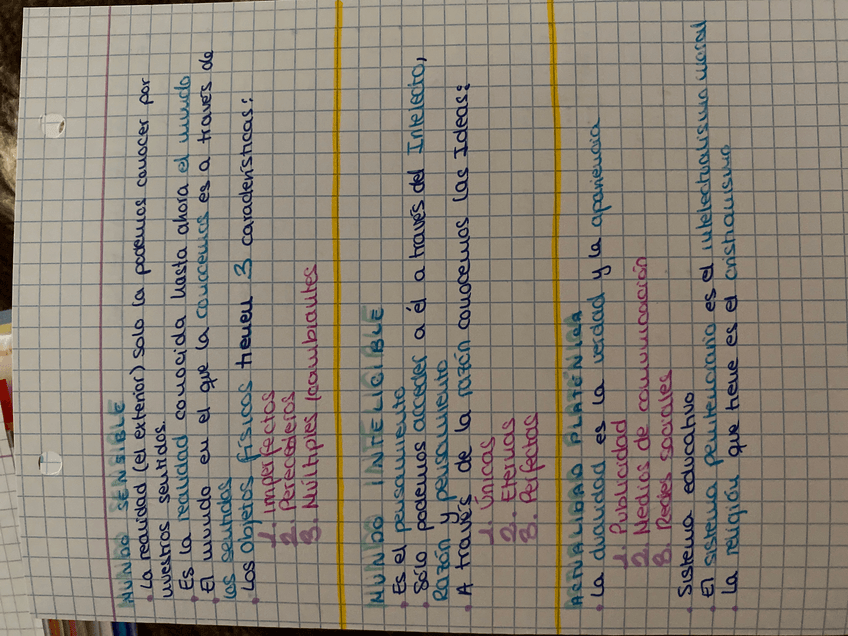 MUNDO SENSIBLE
· La realidad (el exterior) solo la podemos conocer por
nuestros sentidos.
· Es la realidad conocida hasta ahora el mundo
· El mundo en el que la conocemos es a través de
los sentidos
· Los objetos físicos tienen 3 características:
1. Imperfectos
2. Perecederos
3. Múltiples / cambiantes
MUNDO INTELIGIBLE
· Es el pensamiento
· Sólo podemos acceder a él a través del Intelecto,
Razón y pensamiento
· A través de la razón conocemos las Ideas:
1. Únicas
2. Eternas
3. Perfectas
ACTUALIDAD PLATÓNICA
· La dualidad es la verdad y la apariencia
1. Publicidad
2. Medios de comunicación
3. Redes sociales
· Sistema educativo
· El sistema penitenciario es el intelectualismo moral
· La religión que tiene es el cristianismo